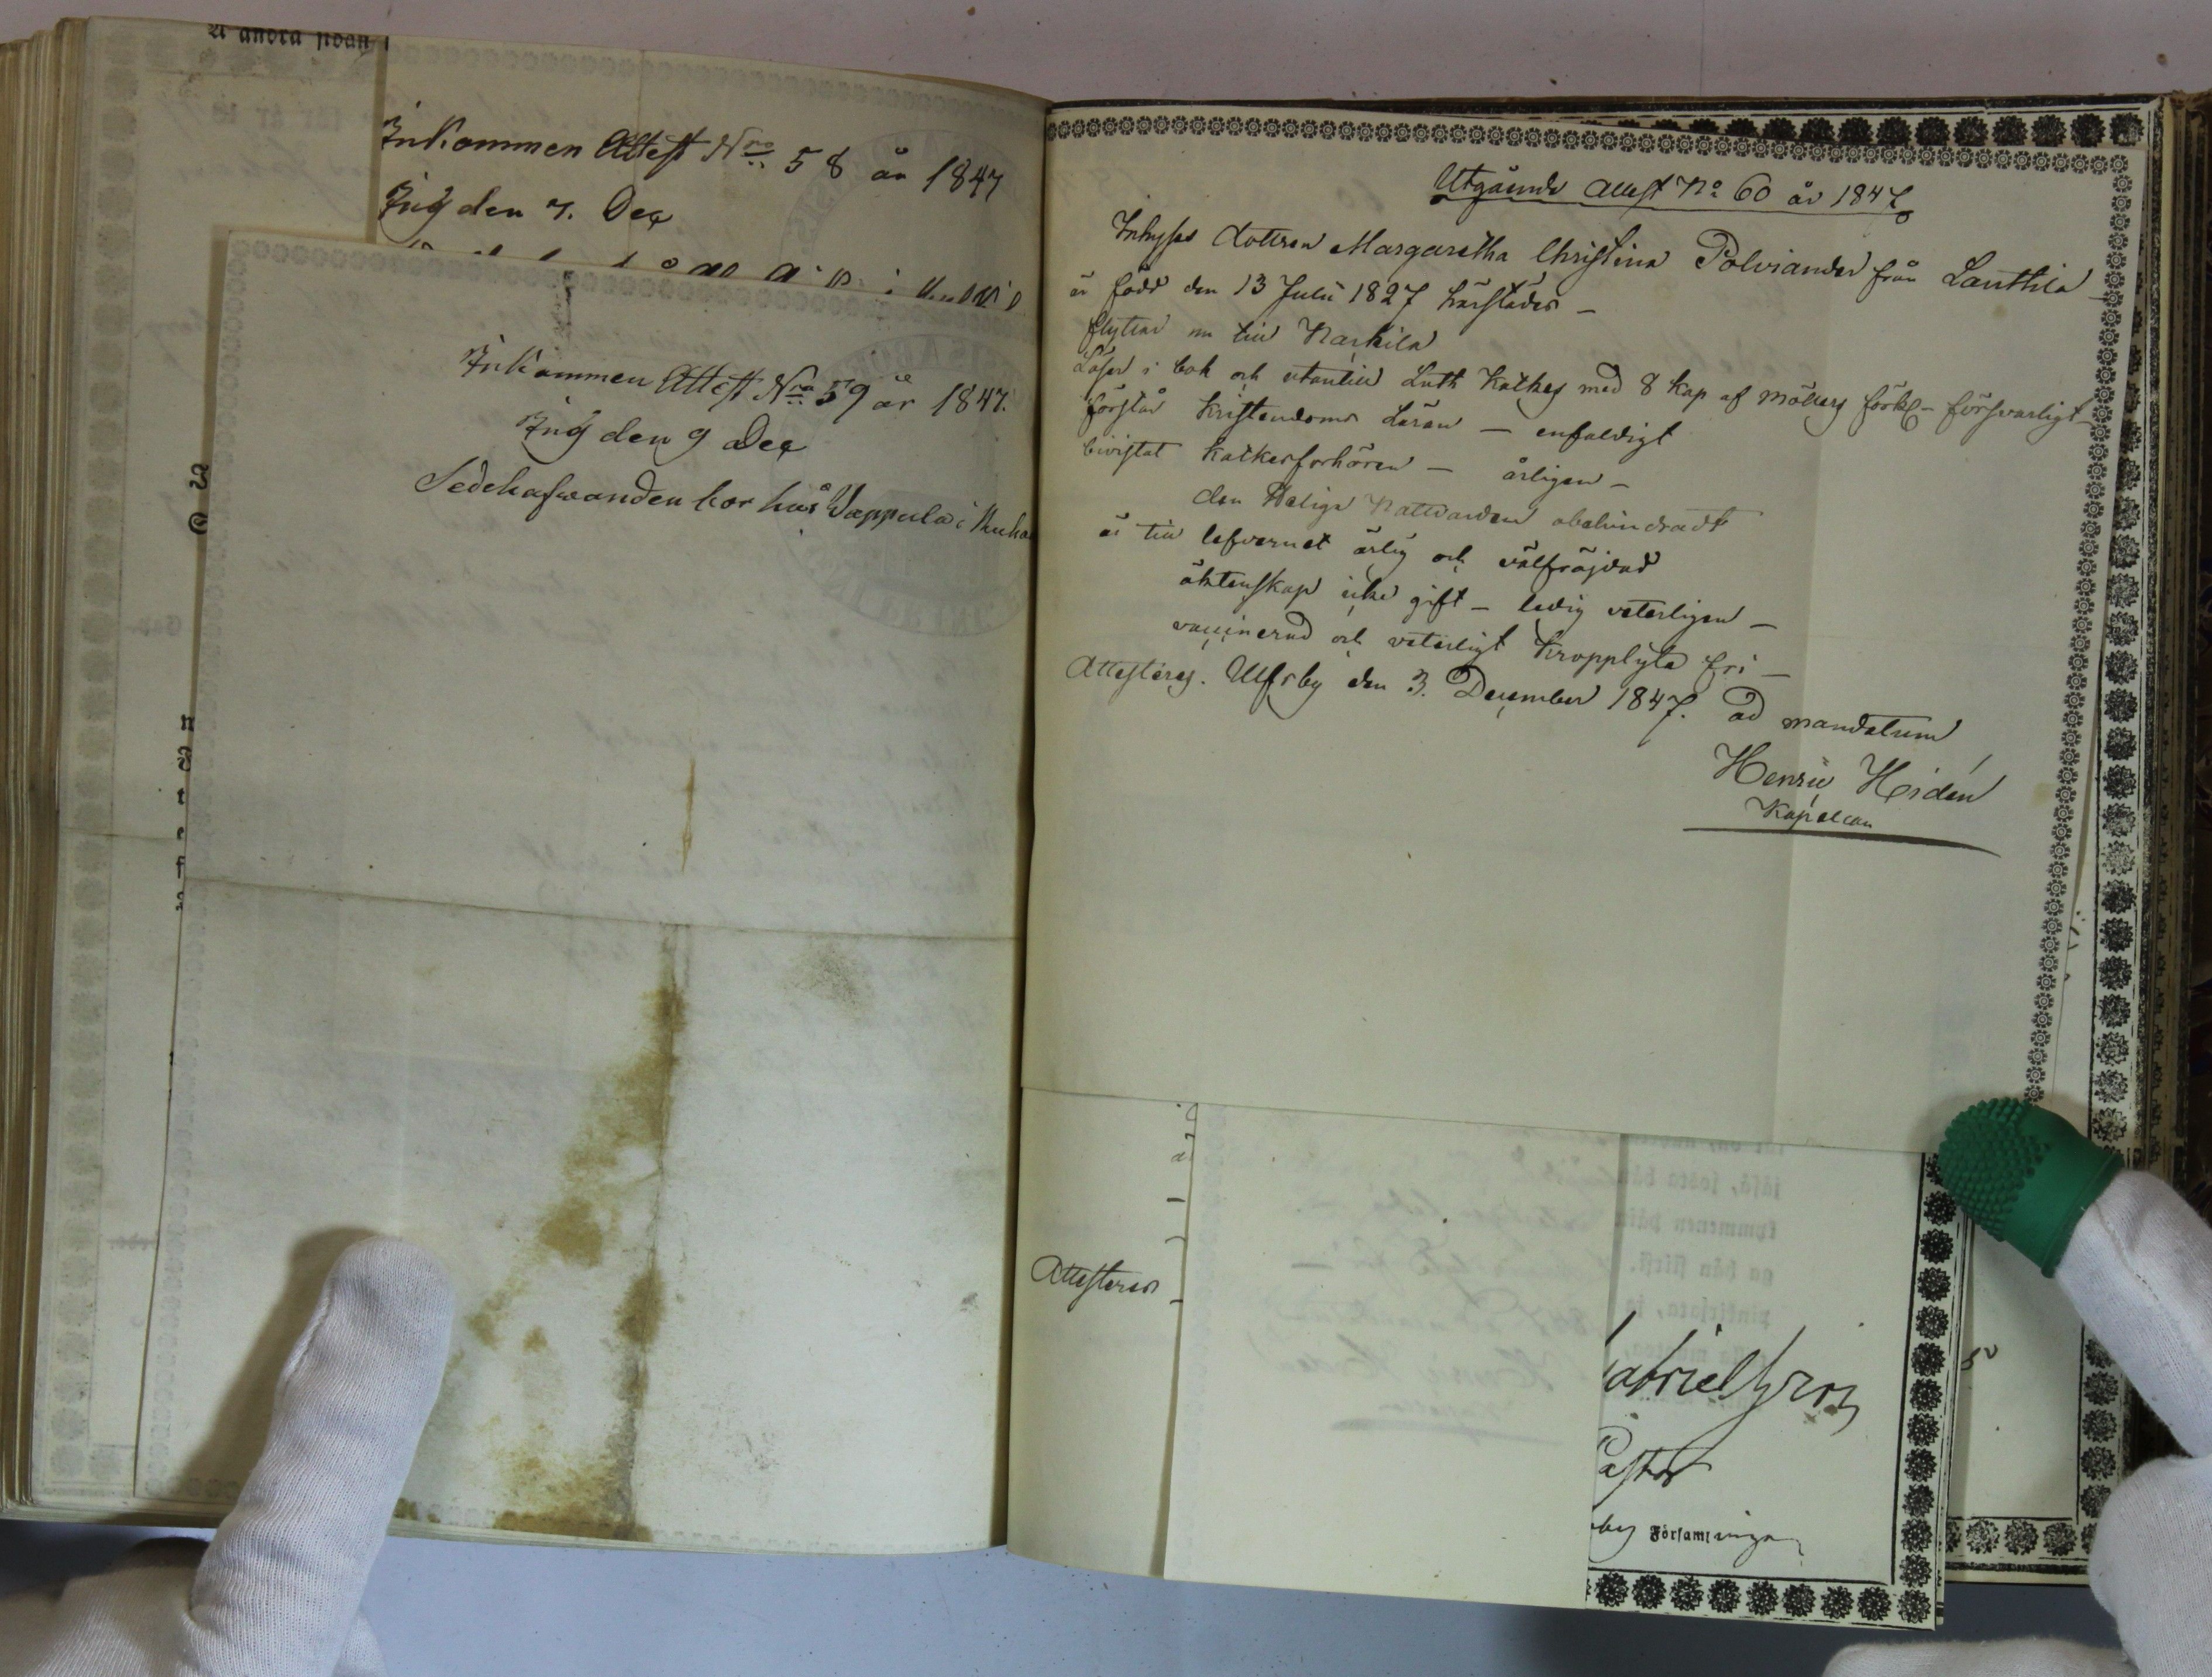 A andra sidan
Inkommen Attest Nro 58 år 1847
Ing den 7. Dec
Inkommen Attest Nro 59 år 1847.
Ing den 9 Dec
Sedelhafwanden bor hos Wappula i
Utgående attest No 60 år 1847
Inhyses dottren Margaretha Christina Polviander från Lanttila
är född den 13 Julii 1827 härstädes –
flyttar nu till Narkila
Läser i bok och utantill Luth Kathes med 8 Kap af Möllers förkl – försvarligt –
förstår Kristendoms Läran – enfaldigt
bivistat Katkesforhören – årligen –
den Heliga Nattvarden obehindradt
är till lefvernet ärlig och välfräjdad
äktenskap icke gift – ledig veterligen –
vaccinerad och veterligt kropplyte fri –
Attesteras. Ulfsby den 3. December 1847. ad mandatum
Henric Hidén
Kapellan
Attesteras
abriel
Pastor
by Församlingen